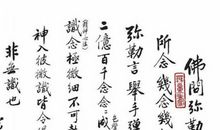 佛問弥勒
所念幾念幾
弥勒言舉手彈
二億百千念念
識念極微細不可
神入彼微識皆令得
非無識也